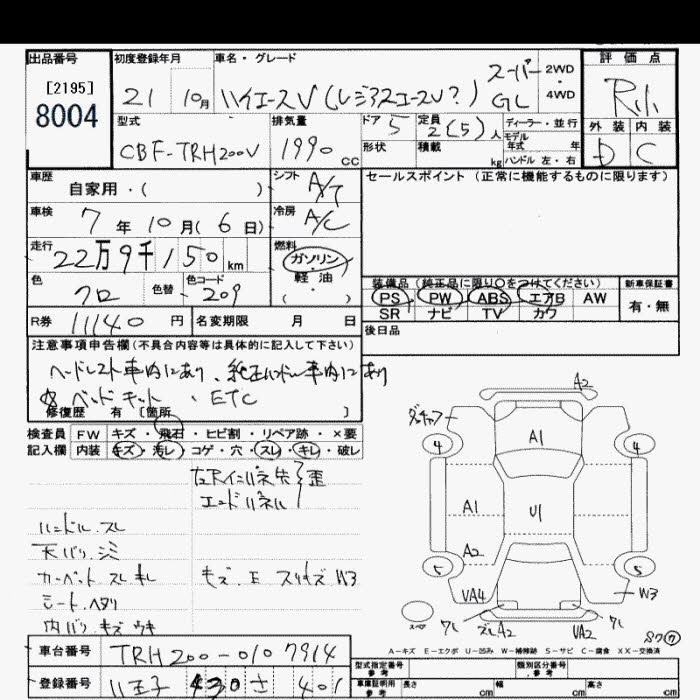 出品番号 初度登録年月 車名・グレード 評価点
[2195]
8004
21 10月 ハイエースV (レジアスエースV?) スーパーGL 2WD 4WD
型式 排気量 ドア 定員 ディーラー・並行 外装 内装
CBF-TRH200V 1990 cc 5 2(5)人 モデル年式 年 D C
形状 積載 kg ハンドル 左・右
車歴 シフト セールスポイント(正常に機能するものに限ります)
自家用・( ) A/T
車検 7年10月(6日) 冷房 A/C
走行 22万9千150km 燃料
ガソリン
軽油
( )
色 クロ 色替 色コード 209
装備品(純正品に限り○をつけてください) 新車保証書
PS PW ABS エアB AW 有・無
SR ナビ TV カワ
R券 11140円 名変期限 月 日
後日品
注意事項申告欄(不具合内容等は具体的に記入して下さい)
ヘッドレスト車内にあり、純正ハンドル車内にあり
ベッドキット・ETC
修復歴 有[箇所 ]
検査員 FW キズ・飛石・ヒビ割・リペア跡・×要
記入欄 内装 キズ・汚レ・コゲ・穴・スレ・キレ・破レ
左Rインパネ先 歪
エンドパネル
ハンドル.スレ
天バリ.シミ
カーペット スレ キレ キズ.E スリキズ W3
シート.ヘタリ
内バリ.キズ ウキ
A2
4 A1 4
A1 U1
A2
5 5
VA4 W3
スペア A2 VA2
A-キズ E-エクボ U-凹み W-補修跡 S-サビ C-腐食 XX-交換済
車台番号 TRH200-0107914
登録番号 八王子 430 さ 401
型式指定番号 参考 類別区分番号 参考
車庫証明用 参考 長さ cm 幅 cm 高さ cm